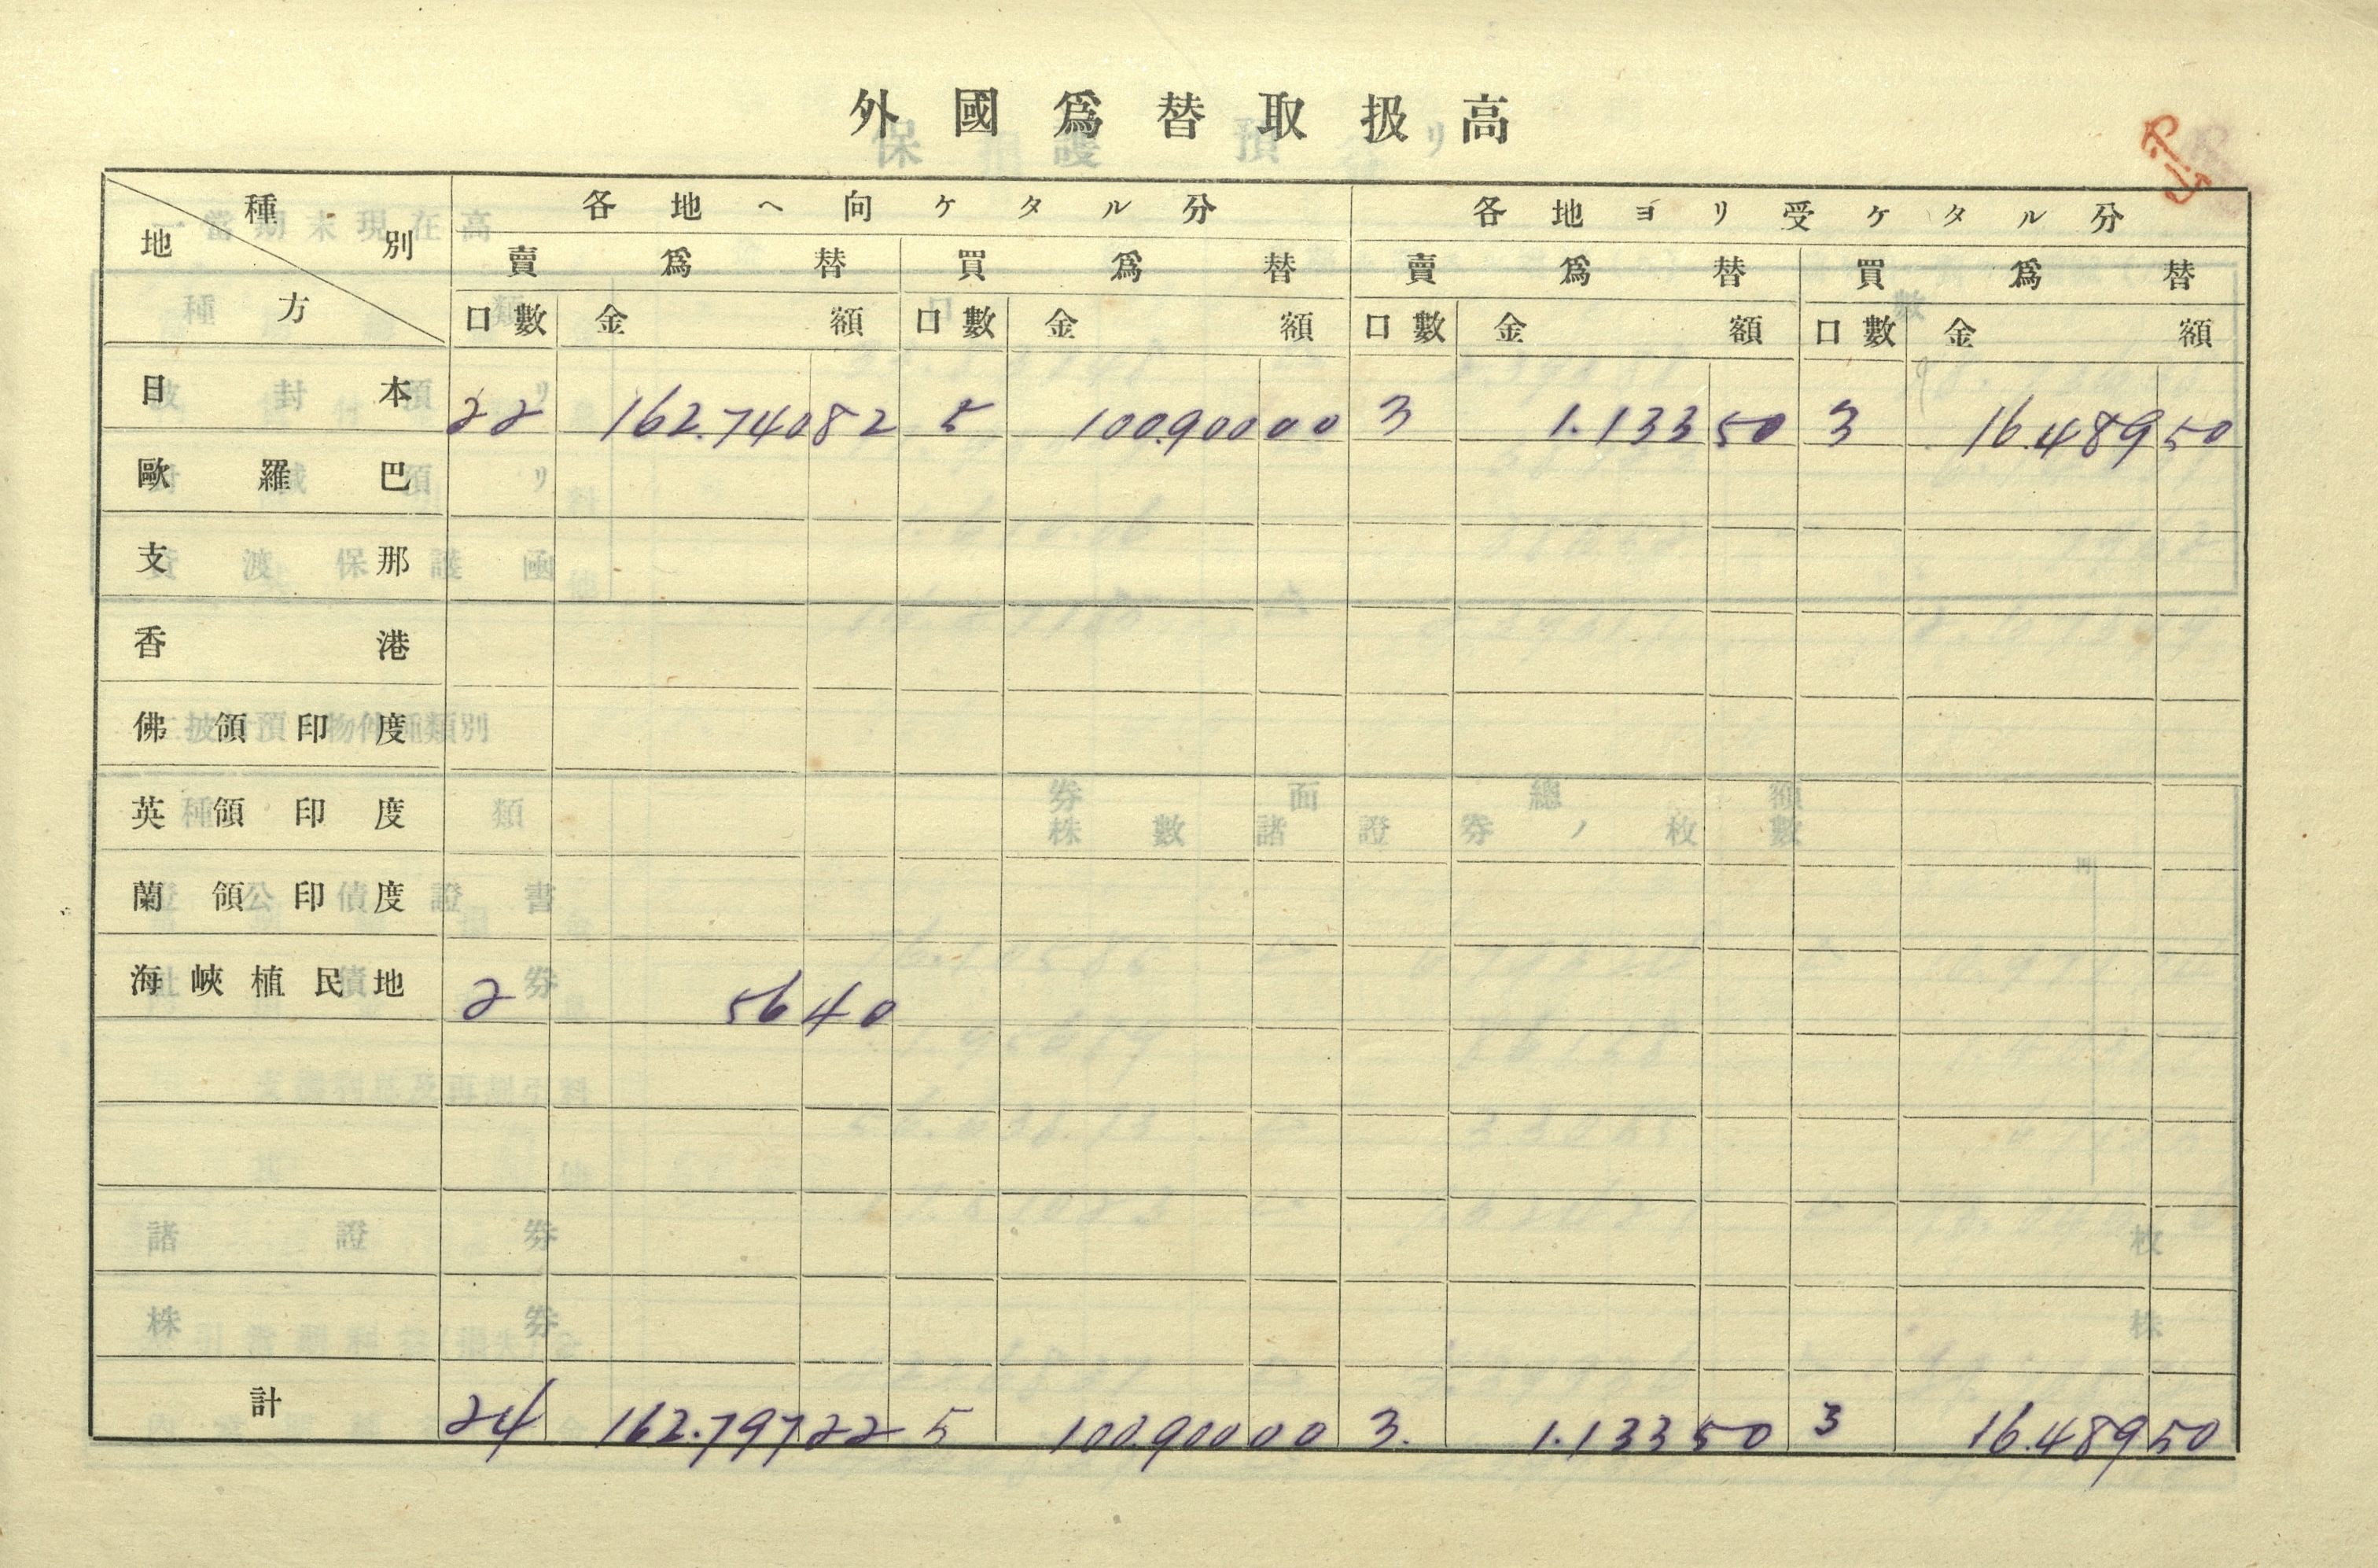 外國爲替取扱高
種別 地方 各地ヘ向ケタル分 各地ヨリ受ケタル分
賣爲替 買爲替 賣爲替 買爲替
口數 金額 口數 金額 口數 金額 口數 金額
日本 22 162.740 82 5 100.900 00 3 1.133 50 3 16.489 50
歐羅巴
支那
香港
佛領印度
英領印度
蘭領印度
海峽植民地 2 56 40
計 24 162.797 22 5 100.900 00 3. 1.133 50 3 16.489 50